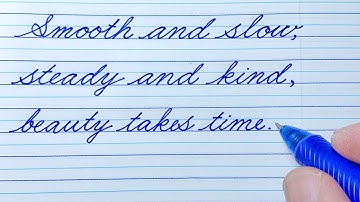 Smooth and slow,
steady and kind,
beauty takes time.